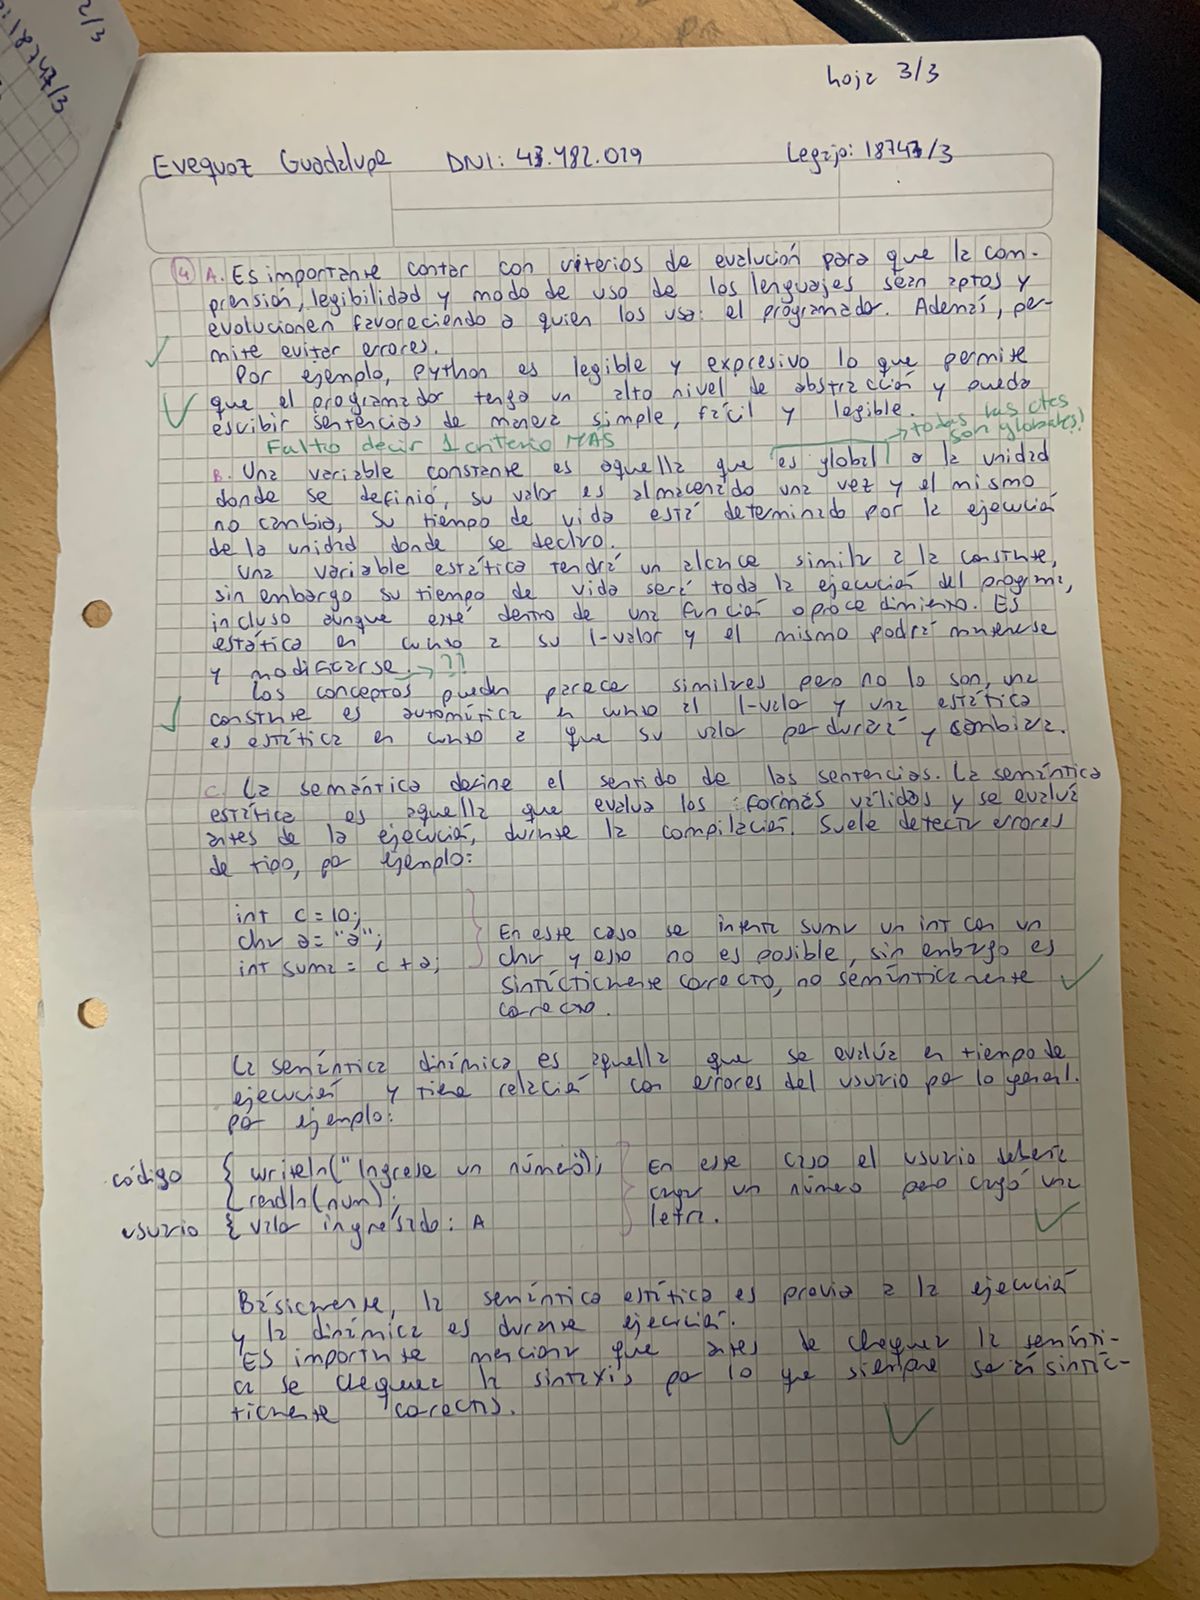 2/3
18747/3
hoja 3/3
Evequoz Guadalupe DNI: 43.482.019 Legajo: 18747/3
4 A. Es importante contar con criterios de evalución para que la com-
prensión, legibilidad y modo de uso de los lenguajes sean aptos y
evolucionen favoreciendo a quien los usa: el programador. Además, per-
mite evitar errores.
Por ejemplo, python es legible y expresivo lo que permite
que el programador tenga un alto nivel de abstracción y pueda
escribir sentencias de manera simple, fácil y legible.
Falto decir 1 criterio MAS
→ todas las ctes
son globales?
B. Una variable constante es aquella que es global a la unidad
donde se definió, su valor es almacenado una vez y el mismo
no cambia, su tiempo de vida está determinado por la ejecución
de la unidad donde se declaro.
Una variable estática tendrá un alcance similar a la constante,
sin embargo su tiempo de vida será toda la ejecución del programa,
incluso aunque esté dentro de una función o procedimiento. Es
estática en cuanto a su l-valor y el mismo podrá mantenerse
y modificarse. → ??
Los conceptos pueden parecer similares pero no lo son, una
constante es automática en cuanto al l-valor y una estática
es estática en cuanto a que su valor perdurará y cambiará.
C. La semántica define el sentido de las sentencias. La semántica
estática es aquella que evalua las formas válidas y se evalúa
antes de la ejecución, durante la compilación. Suele detectar errores
de tipo, por ejemplo:
int c = 10;
char a = "a";
int suma = c + a;
En este caso se intenta sumar un int con un
char y esto no es posible, sin embargo es
sintácticamente correcto, no semánticamente
correcto.
La semántica dinámica es aquella que se evalúa en tiempo de
ejecución y tiene relación con errores del usuario por lo general.
por ejemplo:
código { writeln("Ingrese un número");
readln(num);
usuario { valor ingresado: A
En este caso el usuario debería
cargar un número pero cargó una
letra.
Básicamente, la semántica estática es previa a la ejecución
y la dinámica es durante ejecución.
Es importante mencionar que antes de chequear la semánti-
ca se chequea la sintaxis por lo que siempre será sintác-
ticamente correcto.